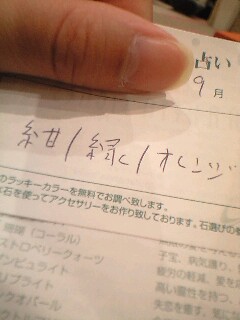 占い
9月
紺/緑/オレンジ
のラッキーカラーを無料でお調べ致します。
石を使ってアクセサリーをお作り致しております。石選びの
珊瑚（コーラル）
ストロベリークォーツ
インピュライト
リプライト
クオパール
子宝、病気避け、
疲労の軽減、愛を
高い霊性を持つ、
失恋を癒す、気に